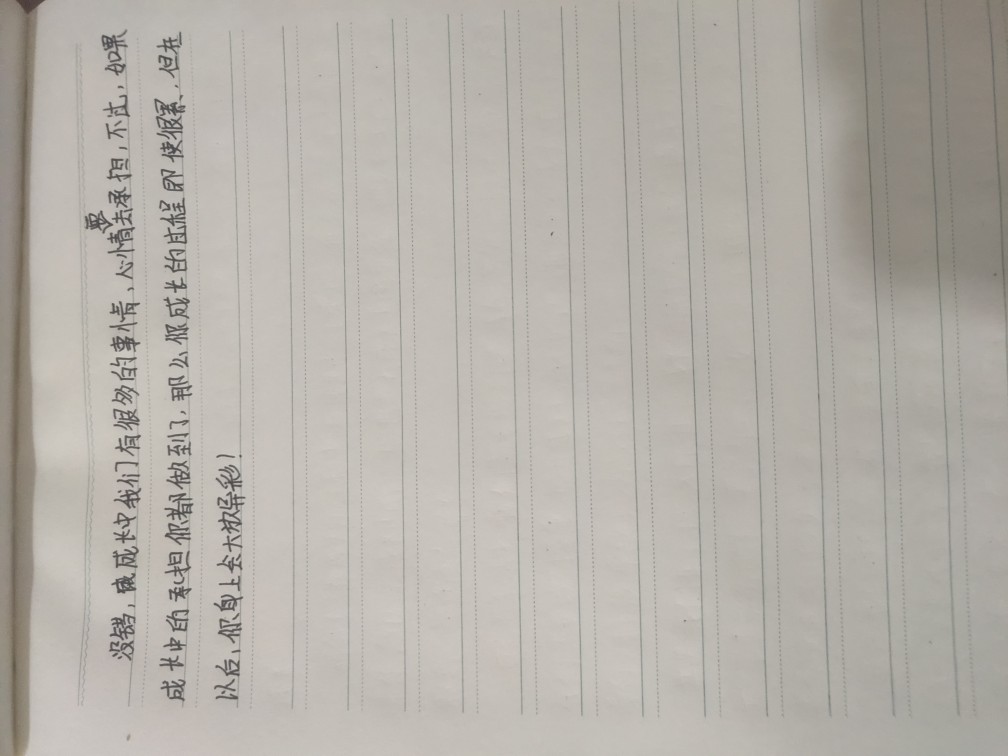 没错，成长中我们有很多的事情、心情要去承担，不过，如果
成长中的承担你都做到了，那么你成长的过程即使很累，但在
以后，你身上会大放异彩！